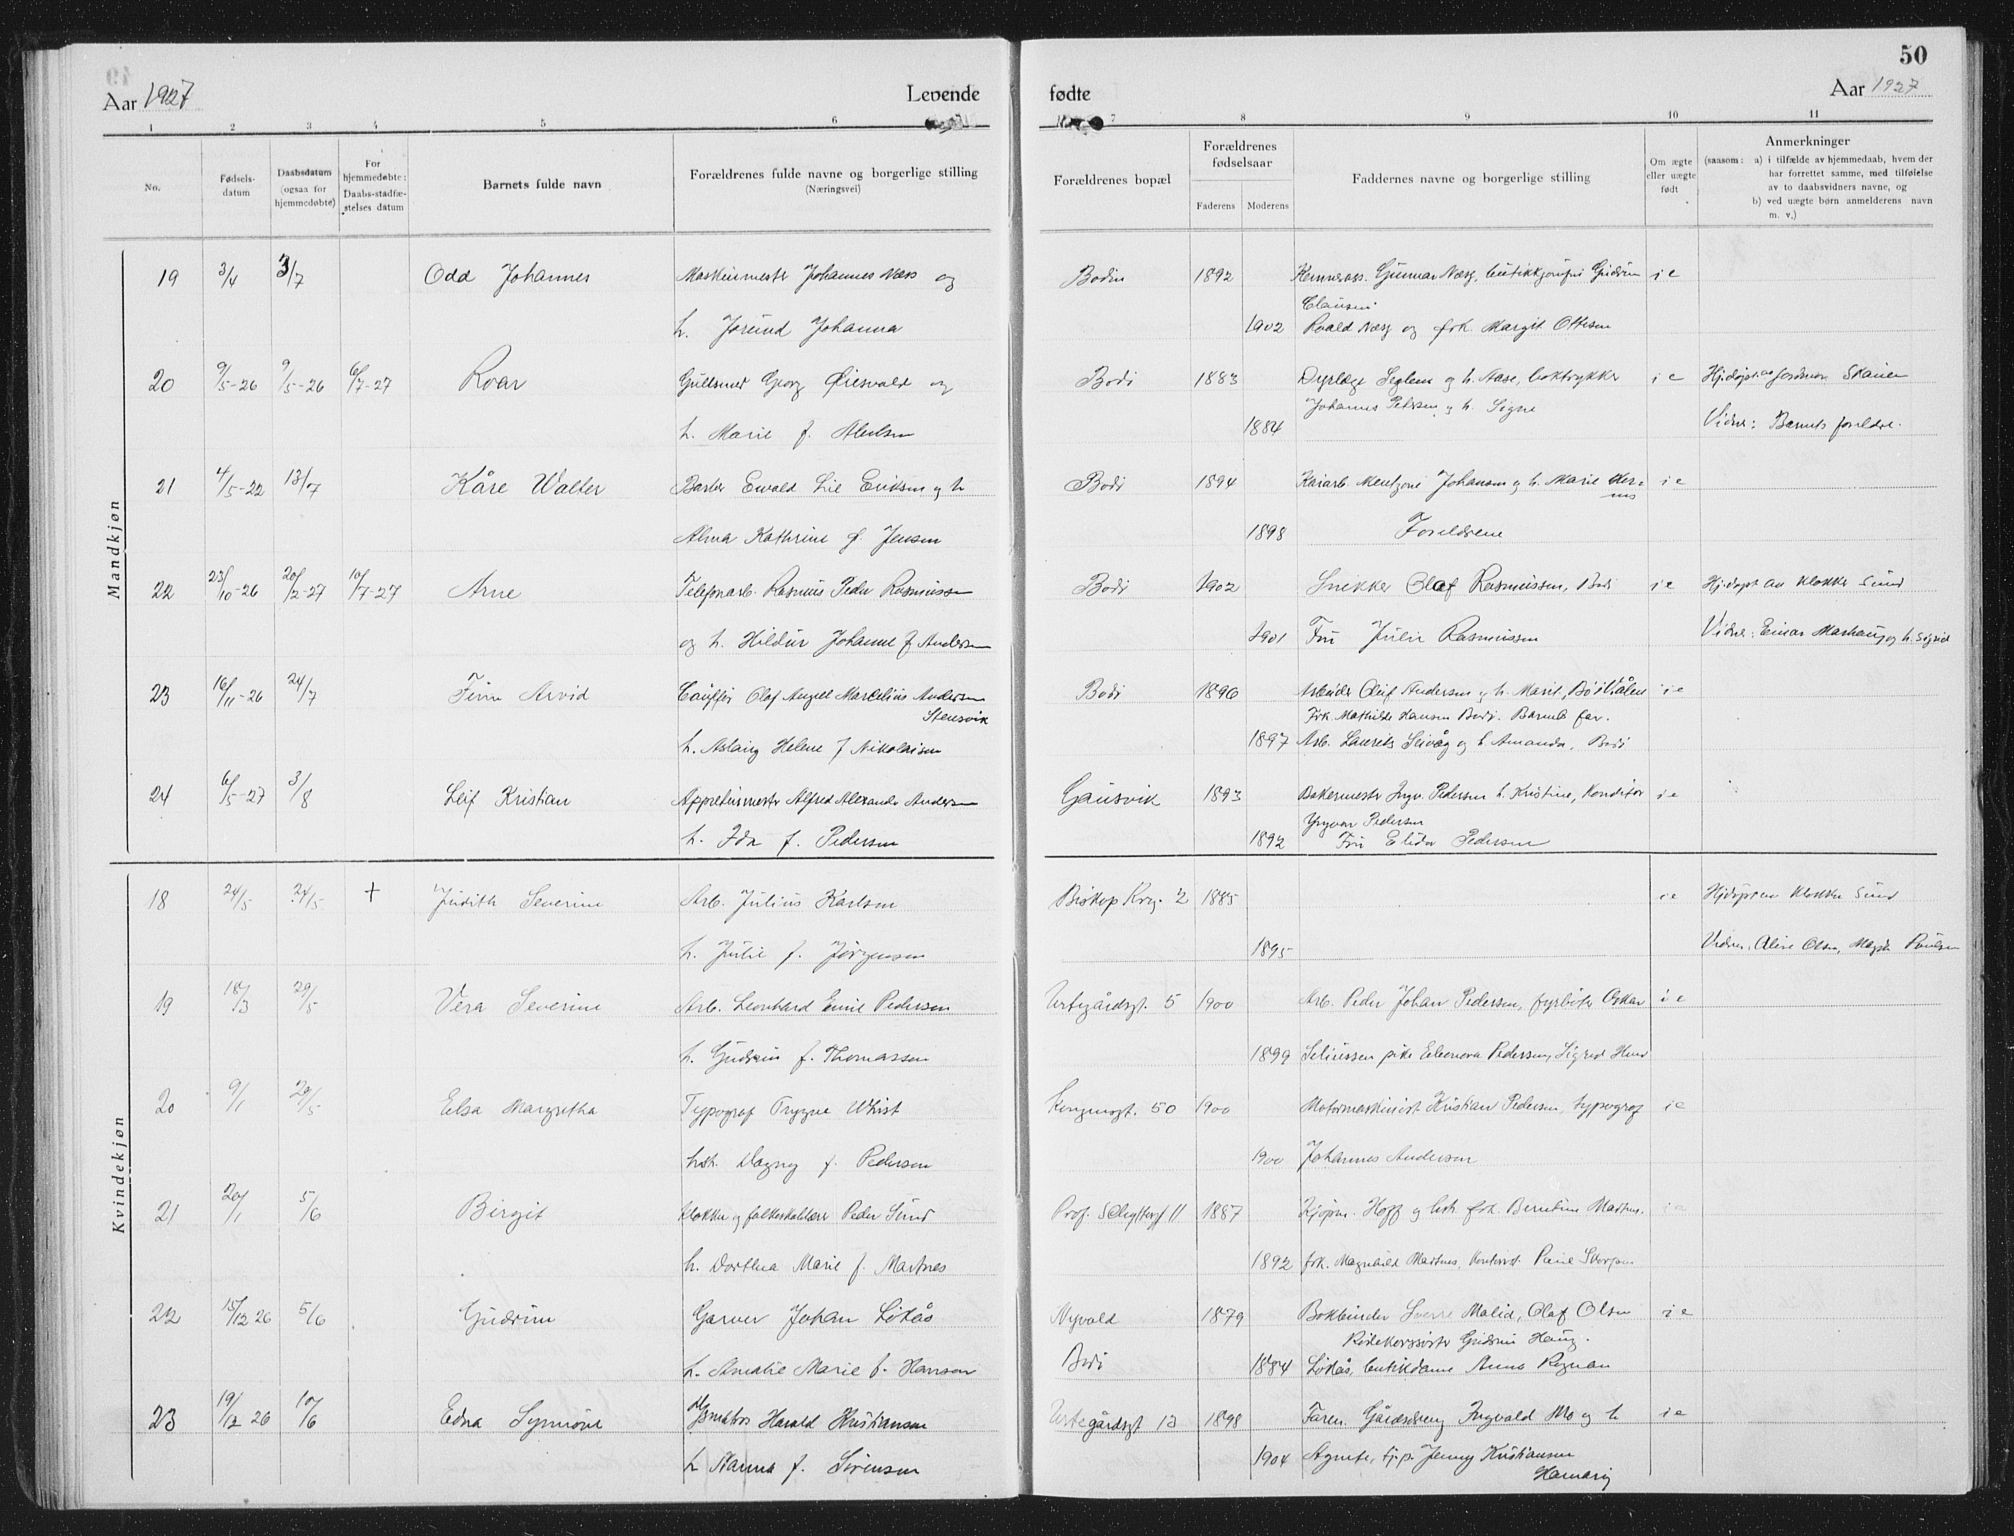 50
Aar 1927 Levende
fødte Aar 1927
1 2 3 4 5 6
7 8 9 10 11
No.
Fødsels-
datum
Daabsdatum
(ogsaa for
hjemmedøbte)
For
hjemmedøbte:
Daabs-stadfæ-
stelses datum
Barnets fulde navn
Forældrenes fulde navne og borgerlige stilling
(Næringsvei)
Forældrenes bopæl
Forældrenes
fødselsaar
Faderens Moderens
Faddernes navne og borgerlige stilling
Om ægte
eller uægte
født
Anmerkninger
(saasom: a) i tilfælde av hjemmedaab, hvem der
har forrettet samme, med tilføielse
av to daabsvidners navne, og
b) ved uægte børn anmelderens navn
m. v.)
Mandkjøn
19 3/4 3/7 Odd Johannes Maskinmester Johannes Næss og Bodin 1892 Gunnar Næss, butikkjomfru Gudrun i e
Clausen
h. Jorund Johanna 1902 Roald Næss og frk. Margit Ottesen
20 9/5-26 9/5-26 6/7-27 Roar Gullsmed Georg og Bodø 1883 Dyrlæge Seglem og h. Aase, boktrykker i e Hj.døpt av jordmor Skauen
Johannes Petersen og h. Signe
h. Marie f. 1884 Vidner: Barnets foreldre.
21 4/5-22 13/7 Kåre Walter Barber Ewald Lie Eriksen og h Bodø 1894 Kaiarb. Mentzoni Johansen og h. Marie i e
Alma Kathrine f. Jensen 1898 Foreldrene
22 23/10-26 20/2-27 10/7-27 Arne Telefonarb. Rasmus Peder Rasmussen Bodø 1902 Snekker Olaf Rasmussen, Bodø i e Hj.døpt av klokker Sund
og h. Hildur Johanne f. Andersen 1901 Fru Julie Rasmussen Vidner: Einar Marhaug og h. Sigrid
23 16/11-26 24/7 Finn Arvid Chauffør Olaf Angell Marcelius Andersen Bodø 1896 Arbeider Oluf Andersen og h. Marit, i e
Stensvik
Frk. Mathilde Hansen Bodø. Barnets far.
h. Aslaug Helene f. Nikolaisen 1897 Arb. Laurits Seivåg og h. Amanda, Bodø
24 6/5-27 3/8 Leif Kristian Appreturmester Alfred Alexander Andersen Gausvik 1893 Bakermester Ingv. Pedersen h. Kristine, Konditor i e
Yngvar Pedersen
h. Ida f. Pedersen 1892 Fru Elida Pedersen
Kvindekjøn
18 24/5 24/5 + Judith Severine Arb. Julius Karlsen Biskop Krg. 2 1885 i e Hjdøpt av klokker Sund
h. Julie f. Jørgensen 1895 Vidner: Aline Olsen, Magda Paulsen
19 18/3 29/5 Vera Severine Arb. Leonhard Emil Pedersen Urtegårdsgt. 5 1900 Arb. Peder Johan Pedersen, fyrbøter Oskar i e
h. Gudrun f. Thomassen 1899 Seliussen pike Eleonora Pedersen, Sigrid Hund
20 9/1 29/5 Elsa Margretha Typograf Trygve Whist Kongensgt. 50 1900 Motormaskinist Kristian Pedersen, typograf i e
hust. Dagny f. Pedersen 1900 Johannes Andersen
21 20/1 5/6 Birgit klokker og folkeskolelærer Peder Sund Prof. Schyttesgt 11 1887 Kjøpm. Hoff og hust. frk. Berntine Martnes. i e
h. Dorthea Marie f. Martnes 1892 frk. Magnhild Martnes, kontorist
22 15/12 26 5/6 Gudrun Garver Johan Løkås Nyvold 1879 Bokbinder Sverre Malid, Olaf Olsen i e
Rødekorssøster Gudrun Haug.
h. Amalie Marie f. Hansen Bodø 1884 Løkås, butikdame Anna Rognan
23 19/12 26 10/6 Edna Synnøve Harald Kristiansen Urtegårdsgt 12 1898 Faren. Gårdsdreng Ingvald Mo og h i e
h Hanna f. Sørensen 1904 Agnete, tj.p. Jenny Kristiansen
Hamarøy